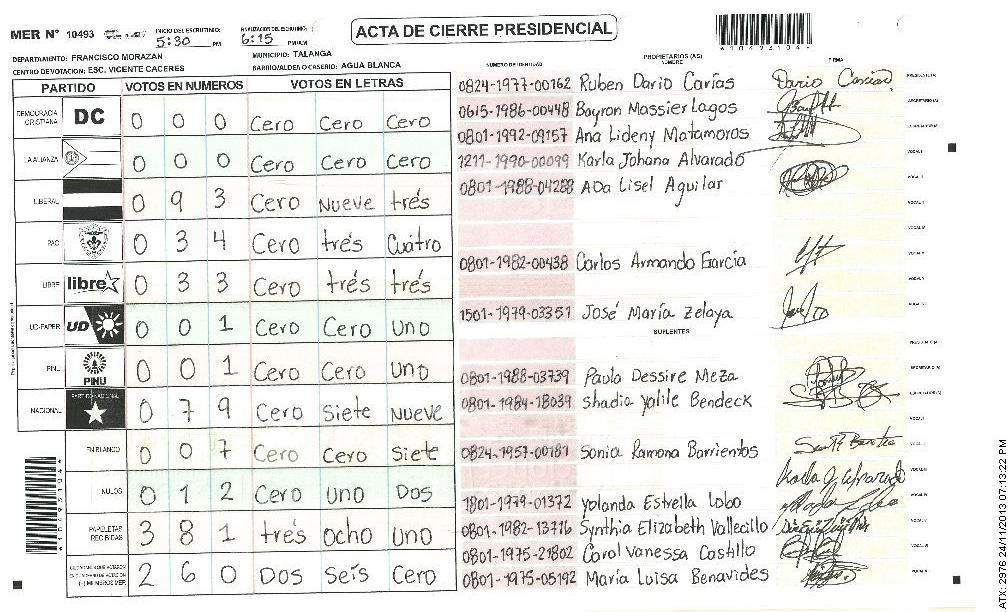 MER N° 10493
INICIO DEL ESCRUTINIO: 5:30 PM
FINALIZACION DEL ESCRUTINIO: 6:15 PM/AM
ACTA DE CIERRE PRESIDENCIAL
*10493104*
DEPARTAMENTO: FRANCISCO MORAZAN
MUNICIPIO: TALANGA
CENTRO DE VOTACION: ESC. VICENTE CACERES
BARRIO/ALDEA O CASERIO: AGUA BLANCA
PARTIDO VOTOS EN NUMEROS VOTOS EN LETRAS
DEMOCRACIA CRISTIANA DC 0 0 0 Cero Cero Cero
LA ALIANZA 0 0 0 Cero Cero Cero
LIBERAL 0 9 3 Cero Nueve trés
PAC 0 3 4 Cero trés Cuatro
LIBRE libre 0 3 3 Cero trés trés
UD-FAPER UD 0 0 1 Cero Cero Uno
PINU PINU 0 0 1 Cero Cero Uno
NACIONAL PARTIDO NACIONAL 0 7 9 Cero Siete Nueve
EN BLANCO 0 0 7 Cero Cero Siete
NULOS 0 1 2 Cero Uno Dos
PAPELETAS RECIBIDAS 3 8 1 trés Ocho Uno
2 6 0 Dos Seis Cero
NUMERO DE IDENTIDAD
PROPIETARIOS (AS)
NOMBRE
FIRMA
0824-1977-00162 Ruben Dario Carías Dario Carias PRESIDENTE(A)
0615-1986-00448 Bayron Massier Lagos SECRETARIO(A)
0801-1992-09157 Ana Lideny Matamoros
1211-1990-00099 Karla Johana Alvarado VOCAL I
0801-1988-04288 Ada Lisel Aguilar
0801-1982-00438 Carlos Armando Garcia
1501-1979-03351 José María Zelaya
SUPLENTES
0801-1988-03739 Paula Dessire Meza
0801-1984-18039 Shadia Yalile Bendeck
0824-1957-00181 Sonia Ramona Barrientos
1801-1979-01372 Yolanda Estrella Lobo
0801-1982-13716 Synthia Elizabeth Vallecillo
0801-1975-21802 Carol Vanessa Castillo
0801-1975-05192 María Luisa Benavides
*10493104*
ATX: 2976 24/11/2013 07:13:22 PM